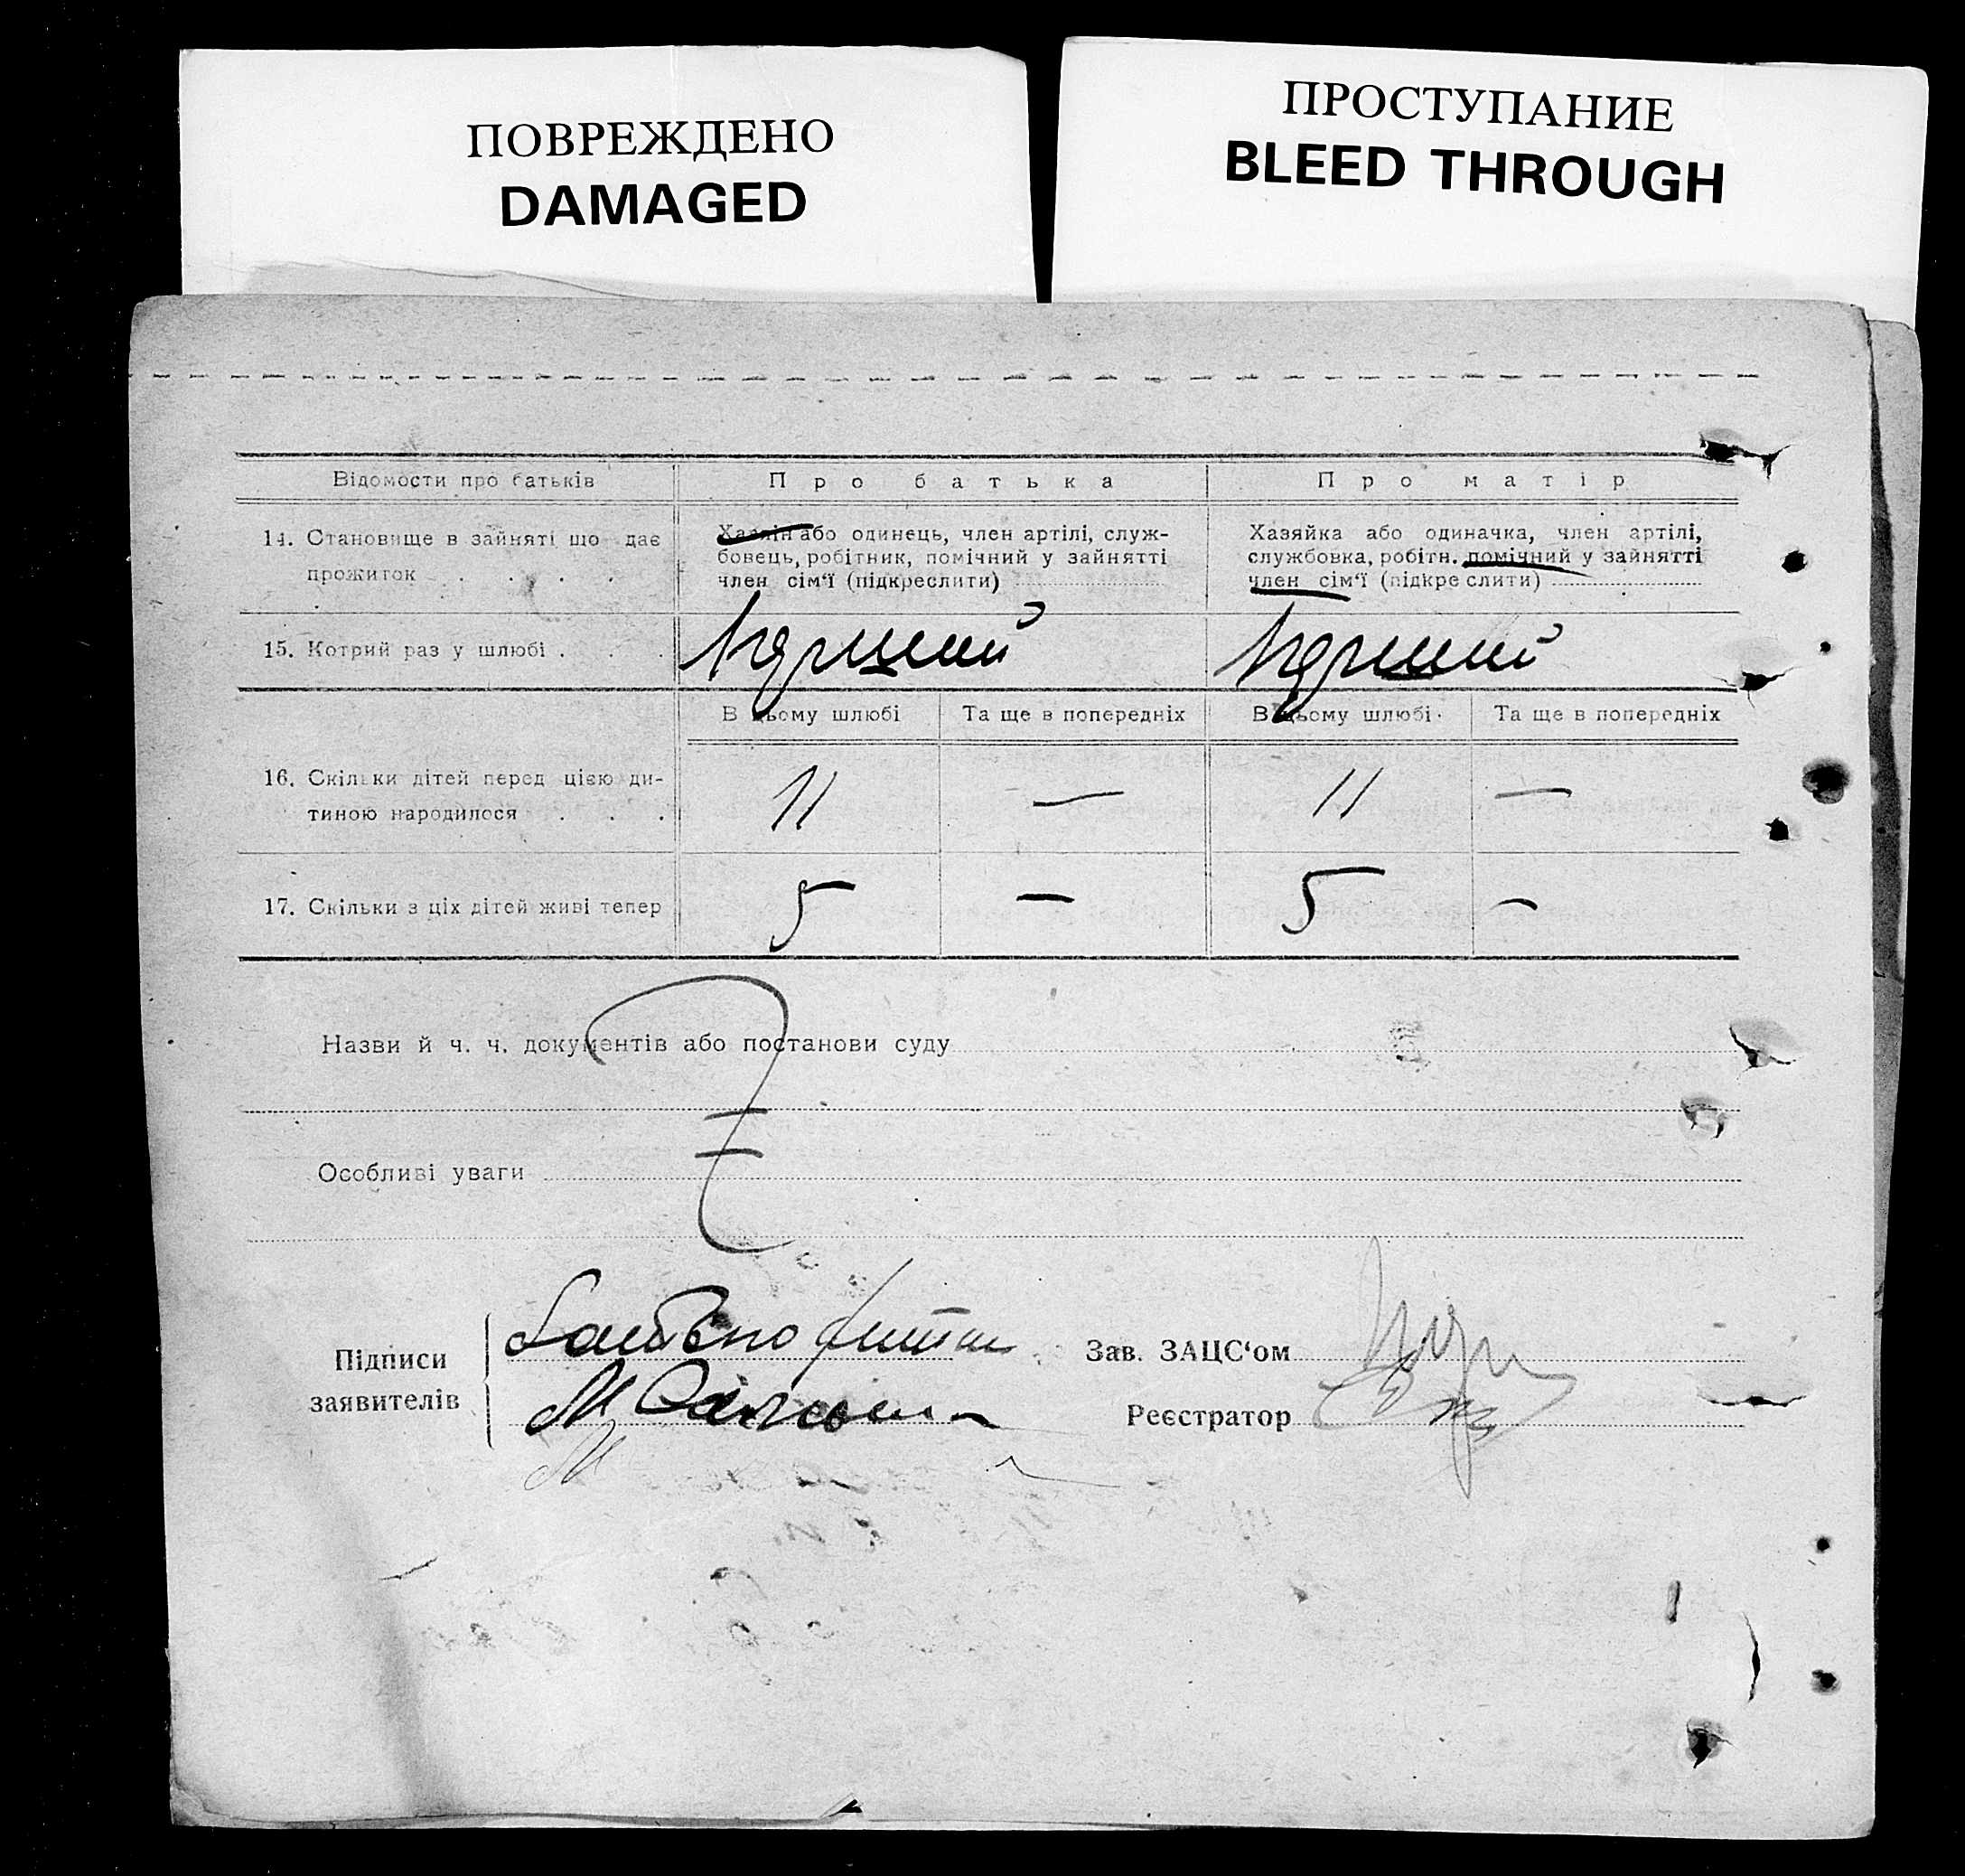 ПОВРЕЖДЕНО
DAMAGED
ПРОСТУПАНИЕ
BLEED THROUGH
Відомости про батьків
Про батька
Про матір
14. Становище в зайняті що дає
прожиток . . . .
Хазяїн або одинець, член артілі, служ-
бовець, робітник, помічний у зайнятті
член сім'ї (підкреслити)
Хазяйка або одиначка, член артілі,
службовка, робітн. помічний у зайнятті
член сім'ї (підкреслити)
15. Котрий раз у шлюбі . . .
Перший
Перший
В цьому шлюбі
Та ще в попередніх
В цьому шлюбі
Та ще в попередніх
16. Скільки дітей перед цією ди-
тиною народилося . . .
11
—
11
—
17. Скільки з ціх дітей живі тепер
5
—
5
—
Назви й ч. ч. документів або постанови суду
Особливі уваги
Підписи
заявителів
Зав. ЗАЦС'ом
Реєстратор